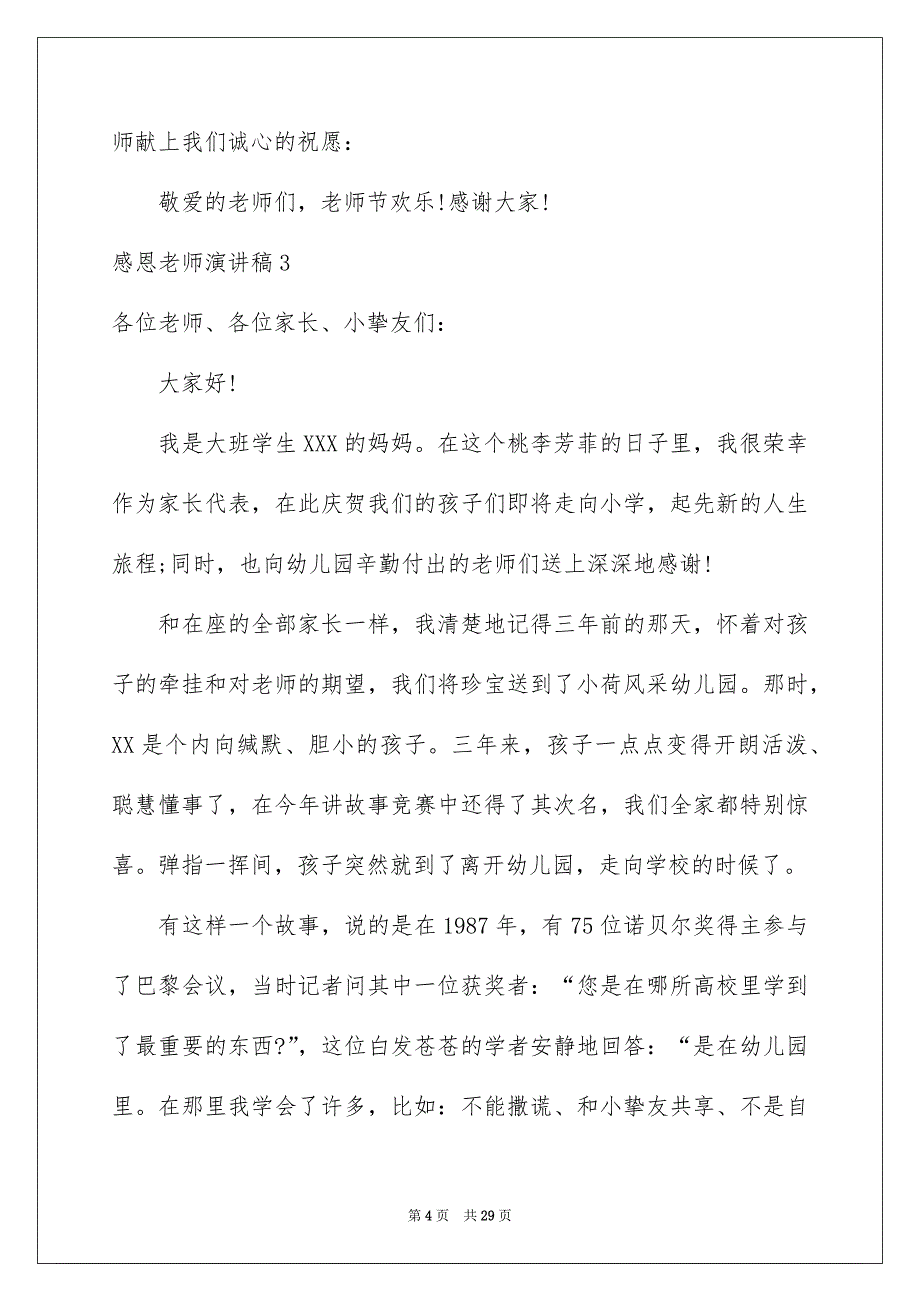 师献上我们诚心的祝愿:
敬爱的老师们，老师节欢乐!感谢大家!
感恩老师演讲稿 3
各位老师、各位家长、小挚友们:
大家好!
我是大班学生 XXX 的妈妈。在这个桃李芳菲的日子里，我很荣幸
作为家长代表，在此庆贺我们的孩子们即将走向小学，起先新的人生
旅程;同时，也向幼儿园辛勤付出的老师们送上深深地感谢!
和在座的全部家长一样，我清楚地记得三年前的那天，怀着对孩
子的牵挂和对老师的期望，我们将珍宝送到了小荷风采幼儿园。那时，
XX 是个内向缄默、胆小的孩子。三年来，孩子一点点变得开朗活泼、
聪慧懂事了，在今年讲故事竞赛中还得了其次名，我们全家都特别惊
喜。弹指一挥间，孩子突然就到了离开幼儿园，走向学校的时候了。
有这样一个故事，说的是在 1987 年，有 75 位诺贝尔奖得主参与
了巴黎会议，当时记者问其中一位获奖者：“您是在哪所高校里学到
了最重要的东西?”，这位白发苍苍的学者安静地回答：“是在幼儿园
里。在那里我学会了许多，比如：不能撒谎、和小挚友共享、不是自
第 4 页 共 29 页